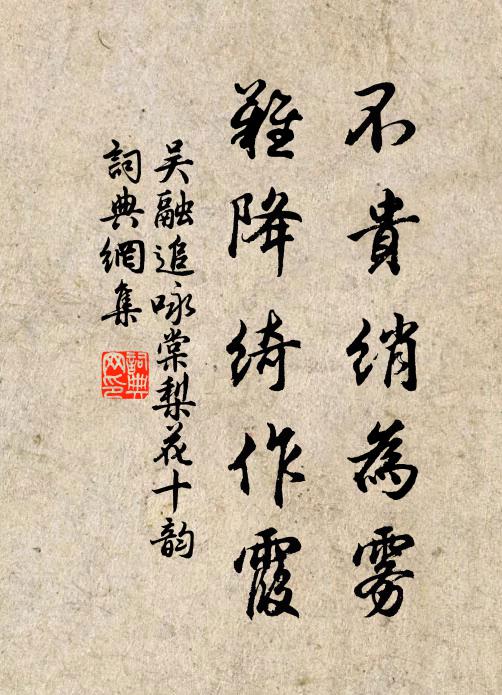 不貴綃為雾
難降綺作霞
吴融追咏棠梨花十韵
詞典網集
詞典
网印